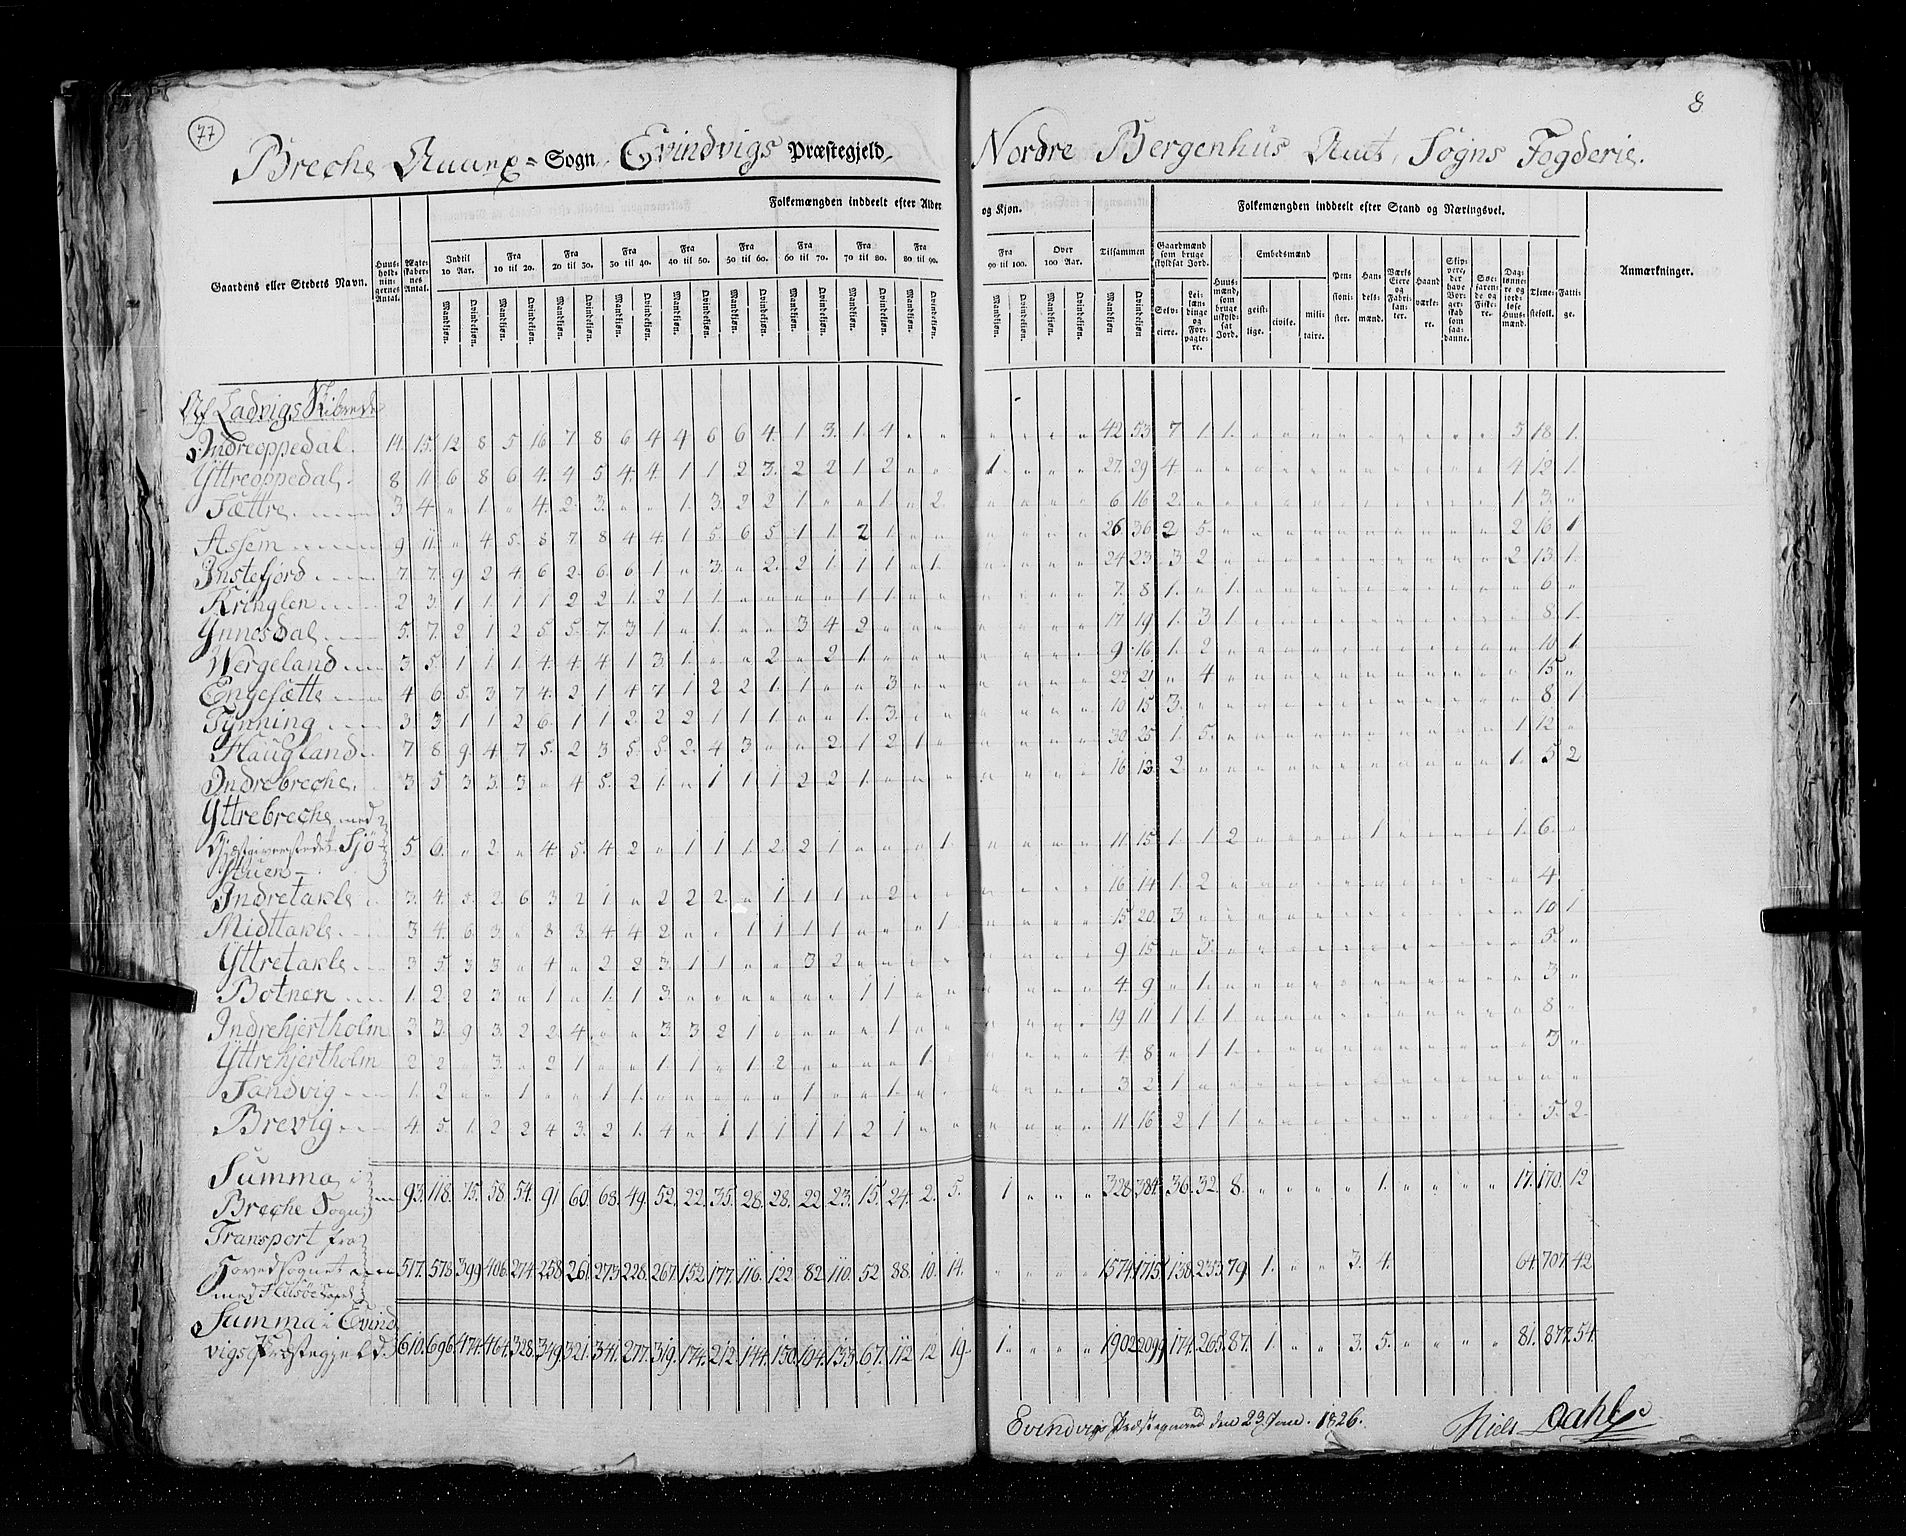 77
8
Breche Annex = Sogn, Evindvigs Præstegjeld, Nordre Bergenhus Amt, Sogns Fogderie.
Gaardens eller Stedets Navn.
Huusholdningernes Antal.
Ægteskabernes Antal.
Folkemængden inddeelt efter Alder og Kjøn.
Indtil 10 Aar. Fra 10 til 20. Fra 20 til 30. Fra 30 til 40. Fra 40 til 50. Fra 50 til 60. Fra 60 til 70. Fra 70 til 80. Fra 80 til 90. Fra 90 til 100. Over 100 Aar. Tilsammen
Mandkjøn. Qvindekjøn.
Folkemængden inddeelt efter Stand og Næringsvei.
Gaardmænd som bruge skyldsat Jord.
Selveiere. Leilændinge og Forpagtere.
Huusmænd, som bruge uskyldsat Jord.
Embedsmænd
geistlige. civile. militaire.
Pensionister.
Handelsmænd.
Værks Eiere og Fabrikanter.
Haandværkere.
Skippere, der have Borgerskab som saadanne.
Søefarende og Fiskere.
Daglønnere og jordløse Huusmænd.
Tjenestefolk.
Fattige.
Anmærkninger.
Af Ladvigs Skibrede
Indreoppedal. 14. 15. 12 8 5 16 7 8 6 4 4 6 6 4. 1 3. 1. 4 " " " " " " 42 53 7 1. 1. " " " " " " " " " 5 18 1.
Yttreoppedal. 8 11 6 8 6 4. 4 5 4. 4. 1 1 2 3. 2 2 1 2 " " 1. " " " 27. 29 4 " " " " " " " " " " " 4 12 1.
Sættre 3 4 " 1 " 4. 2 3. " " 1. 3. 2 2 1 " " 1 " 2. " " " " 6 16 2. " " " " " " " " " " " 1 3. "
Assem 9 11. " 4. 5. 8 7 8 4 4. 1 5. 6 5 1 1 2 1. " " " " " " 26 36 2 5. " " " " " " " " " " 2 16 1
Instefjord 7. 7. 9 2 4. 6 2. 6. 6 1 " 3. " 2. 2 1 1 1. " 1. " " " " 24 23. 3 2 " " " " " " " " " " 2 13. 1.
Kringlen 2 3. 1 1. 1 1 2 2 1. 2 1 1 " " " " 1 1 " " " " " " 7. 8 1. " 1. " " " " " " " " " " 6 "
Ynnesdal 5. 7. 2 1 2 5. 5. 7. 3 1 " 1. " " 3 4 2 " " " " " " " 17 19 1. 3 1 " " " " " " " " " " 8 1.
Wergeland 3 5. 1 1 1. 4. 4. 4 1 3 1. " " 2 " 2 1. " " " " " " " 9 16. 1. 2 " " " " " " " " " " " 10 1
Engesætte 4 6. 5 3 7 4. 2 1 4 7 1 2 2 1. 1 " " 3. " " " " " " 22 21 " 4 " " " " " " " " " " " 15 "
Tynning 3 3. 1 1 2 6. 1 1 2. 2 2 1 1 1. " " 1. 3. " " " " " " 10 15 3. " " " " " " " " " " " " 8 1
Haugland 7 8 9 4 7 5. 2 3 5 5. 2. 4 3 " " 2 1 2 1. " " " " " 30 25 1. 5. " " " " " " " " " " 1 12 "
Indrebreche. 3 5 3 3. 3 " 4 5. 2 1. " 1 1 1 2 2 1. " " " " " " " 16 13 2 " " " " " " " " " " " 1. 5 2
Yttrebreche med
Gjæstgiverstedet Sjø 5 6. " 2 " 4. 5. 4 2 " 1 1 1 2 2 1 " " " 1 " " " " 11 15 1. 1 2 " " " " 1 " " " " 1. 6. "
stuen
Indretakle 3. 4. 5. 2 6 3 2 1 " 2 2 2. " 1 1 1 " 2 " " " " " " 16 14 1. 2 " " " " " " " " " " " 4
Midttakle 3 4. 6 3. " 8 3. 4 4 2 " " 1 1 1 1 " " " 1 " " " " 15 20 3 " " " " " " " " " " " " 10 1
Yttretakle 3 5. 3 3. " 4. " 2 2 3. 1 1. " " 3 2 " " " " " " " " 9 15. " 3. " " " " " " " " " " " 5. "
Botnen 1. 2. 2 3. " 1 " 1. 1 3. " " " " " " 1 1 " " " " " " 4. 9 " 1. " " " " " " " " " " " 3 "
Indrehjertholm 3 3. 9 3. 2 2 4. " " 3. 3 2 1 " " " " 1 " " " " " " 19 11 1 1 1 " " " " " " " " " " 8 "
Yttrehjertholm 2 2 " 3. " 2 1 " " 1 1 " 1. 2 " " " " 1 " " " " " 4. 8 " 1 1. " " " " " " " " " " 3 "
Sandvig 1. 2 " " 1 " " 1 1 " " " " " 1 " " 1 " " " " " " 3 2 1 " " " " " " " " " " " " " "
Brevig 4. 5. 1. 2 2 4 3. 2 1. 4 " 1 1 1 1 1 2 1 " " " " " " 11 16 2 1 1 " " " " " " " " " " 5. 2.
Summa i
Breche Sogn 93. 118. 75. 58. 54. 91 60. 68. 49. 52. 22. 35. 28. 28. 22. 23. 15. 24. 2. 5. 1 " " " 328. 384. 36. 32. 8. " " " " 1. " " " " 17. 170. 12
Transport fra
Hovedsognet 517. 578. 399. 406. 274. 258. 261. 273. 228. 267. 152. 177. 116. 122. 82. 110. 52. 88. 10. 14. " " " " 1574. 1715. 138. 233. 79. 1. " " 3. 4. " " " " 64. 707. 42.
med Husøe
Summa i Evind
vigs Præstegjeld 610. 696. 474. 464. 328. 349. 321. 341. 277. 319. 174. 212. 144. 150. 104. 133. 67. 112 12. 19. 1. " " " 1902. 2099. 174. 265. 87. 1. " " 3. 5. " " " " 81. 877. 54.
Evindvigs Præstegaard den 23 Jan. 1826.
Niels Dahl